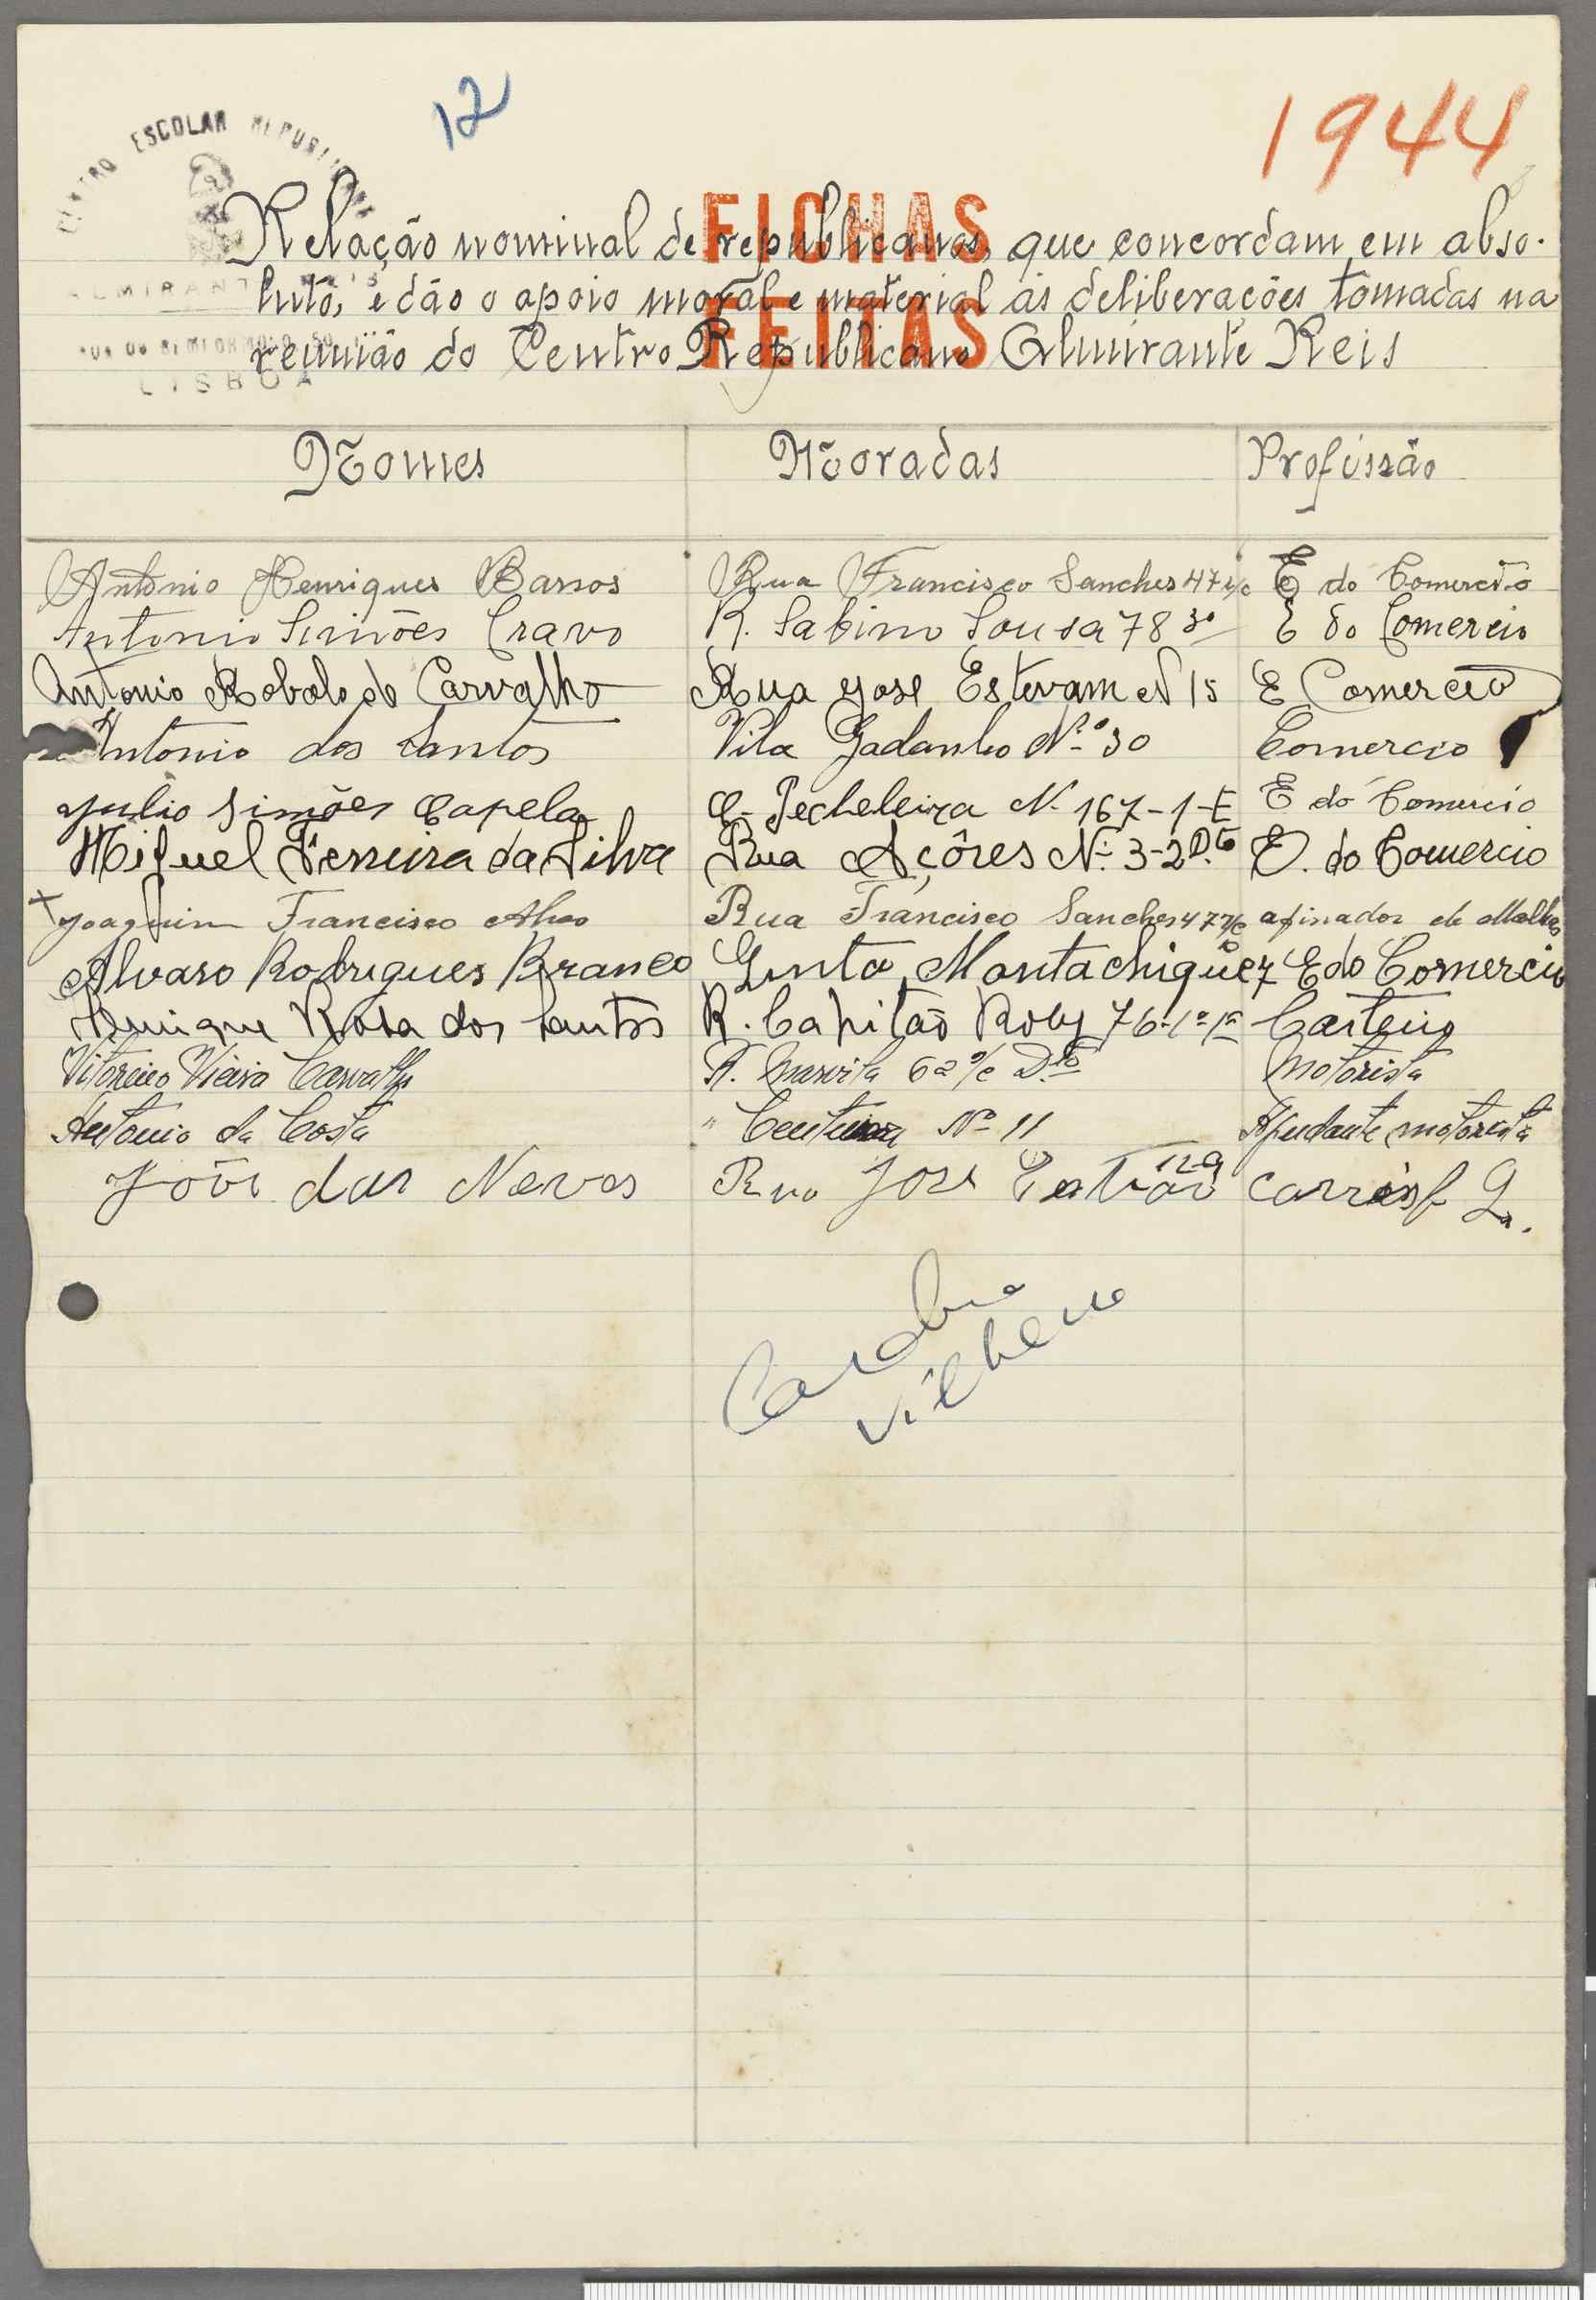 12
1944
CENTRO ESCOLAR REPUBLICANO
ALMIRANTE REIS
LISBOA
FICHAS
FEITAS
Relação nominal de republicanos, que concordam em abso-
luto, e dão o apoio moral e material ás deliberações tomadas na
reunião do Centro Republicano Almirante Reis
Nomes Moradas Profissão
Antonio Henriques Barros Rua Francisco Sanches 47 r/c E do Comercio
Antonio Simões Cravo R. Sabino Sousa 78 3º E do Comercio
Antonio Robalo de Carvalho Rua José Estevam N 15 E Comercio
Antonio dos Santos Vila Gadanho Nº 30 Comercio
Julio Simões Capela C. Pecheleira N. 167-1-E E do Comercio
Miguel Ferreira da Silva Rua Açôres N. 3-2 D.to E. do Comercio
x Joaquim Francisco Rua Francisco Sanches 47 r/c afinador de Malhas
Alvaro Rodrigues Branco Quinta Montachiquez E do Comercio
Henrique Rosa dos Santos R. Capitão Roby 76-1º Carteiro
Vitorino Vieira Carvalho R. 62 r/c D.to Motorista
Antonio da Costa " Nº 11 Ajudante motorista
João das Neves Rua José Patrão
Vilhena